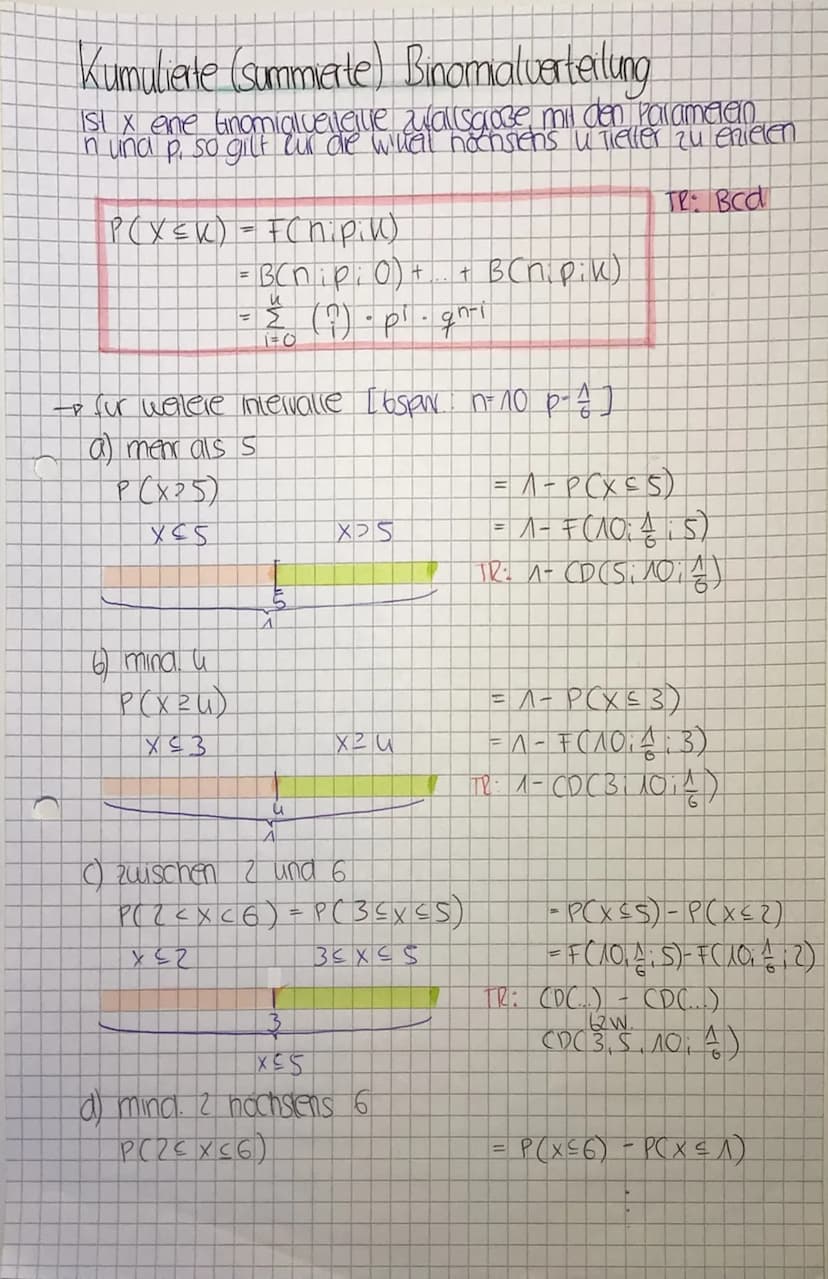 Kumulierte (summierte) Binomialverteilung
Ist X eine binomialverteilte Zufallsgröße mit den Parametern
n und p, so gilt für die W'keit höchstens k Treffer zu erzielen
TR: Bcd
P(X≤k) = F(n;p;k)
= B(n;p;0) + ... + B(n;p;k)
= k Σ i=0 (n i) · p^i · q^n-i
→ für weitere Intervalle [bspw.: n=10 p=1/6]
a) mehr als 5
P(X>5) = 1-P(X≤5)
X≤5 X>5 = 1- F(10;1/6;5)
5 TR: 1- CD(5;10;1/6)
1
b) mind. 4
P(X≥4) = 1- P(X≤3)
X≤3 X≥4 = 1- F(10;1/6;3)
4 TR: 1-CD(3;10;1/6)
1
c) zwischen 2 und 6
P(2<X<6) = P(3≤X≤5) = P(X≤5)-P(X≤2)
X≤2 3≤X≤5 = F(10;1/6;5)-F(10;1/6;2)
3 TR: CD(...) - CD(...)
bzw.
X≤5 CD(3,5,10;1/6)
d) mind. 2 höchstens 6
P(2≤X≤6) = P(X≤6) - P(X≤1)
⋮